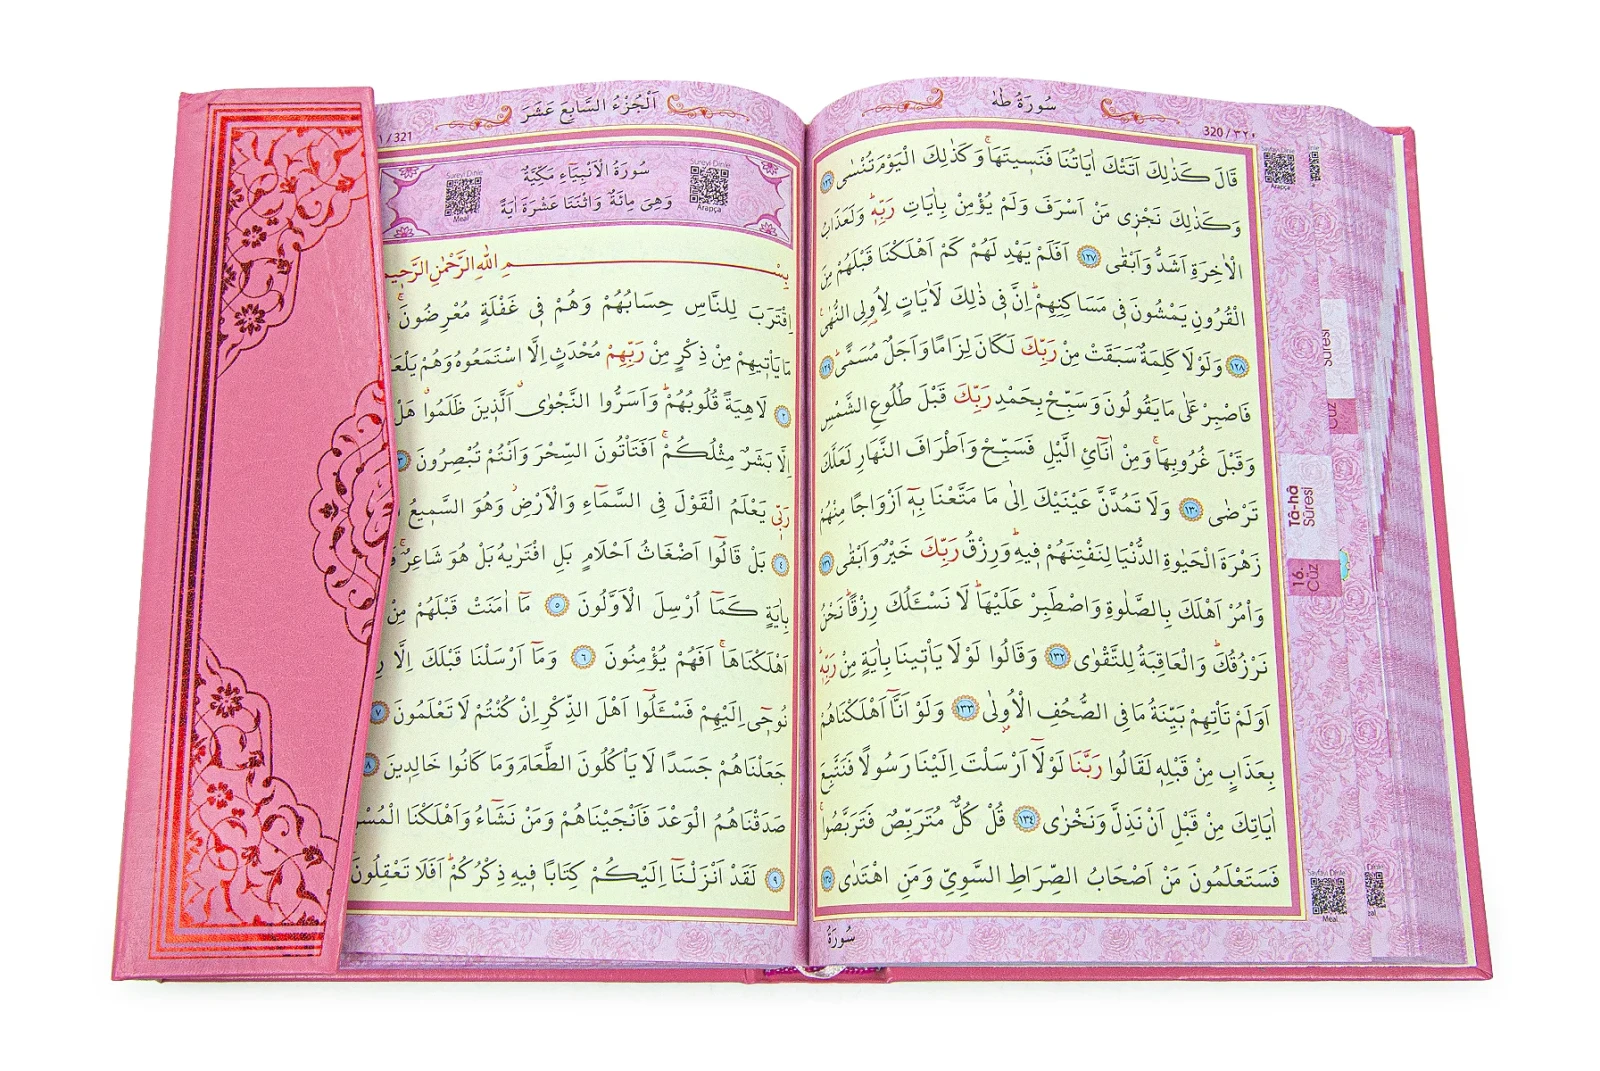 سُورَةُ طٰهٰ
320 / ٣٢٠
قَالَ كَذٰلِكَ اَتَتْكَ اٰيَاتُنَا فَنَسٖيتَهَاۚ وَكَذٰلِكَ الْيَوْمَ تُنْسٰى ١٢٦
وَكَذٰلِكَ نَجْزٖى مَنْ اَسْرَفَ وَلَمْ يُؤْمِنْ بِاٰيَاتِ رَبِّهٖؕ وَلَعَذَابُ
الْاٰخِرَةِ اَشَدُّ وَاَبْقٰى ١٢٧ اَفَلَمْ يَهْدِ لَهُمْ كَمْ اَهْلَكْنَا قَبْلَهُمْ مِنَ
الْقُرُونِ يَمْشُونَ فٖى مَسَاكِنِهِمْؕ اِنَّ فٖى ذٰلِكَ لَاٰيَاتٍ لِاُولِى النُّهٰى
١٢٨ وَلَوْلَا كَلِمَةٌ سَبَقَتْ مِنْ رَبِّكَ لَكَانَ لِزَامًا وَاَجَلٌ مُسَمًّىؕ ١٢٩
فَاصْبِرْ عَلٰى مَا يَقُولُونَ وَسَبِّحْ بِحَمْدِ رَبِّكَ قَبْلَ طُلُوعِ الشَّمْسِ
وَقَبْلَ غُرُوبِهَاۚ وَمِنْ اٰنَآئِ الَّيْلِ فَسَبِّحْ وَاَطْرَافَ النَّهَارِ لَعَلَّكَ
تَرْضٰى ١٣٠ وَلَا تَمُدَّنَّ عَيْنَيْكَ اِلٰى مَا مَتَّعْنَا بِهٖٓ اَزْوَاجًا مِنْهُمْ
زَهْرَةَ الْحَيٰوةِ الدُّنْيَا لِنَفْتِنَهُمْ فٖيهِؕ وَرِزْقُ رَبِّكَ خَيْرٌ وَاَبْقٰى ١٣١
وَاْمُرْ اَهْلَكَ بِالصَّلٰوةِ وَاصْطَبِرْ عَلَيْهَاؕ لَا نَسْـَٔلُكَ رِزْقًاؕ نَحْنُ
نَرْزُقُكَؕ وَالْعَاقِبَةُ لِلتَّقْوٰى ١٣٢ وَقَالُوا لَوْلَا يَاْتٖينَا بِاٰيَةٍ مِنْ رَبِّهٖؕ
اَوَلَمْ تَاْتِهِمْ بَيِّنَةُ مَا فِى الصُّحُفِ الْاُولٰى ١٣٣ وَلَوْ اَنَّٓا اَهْلَكْنَاهُمْ
بِعَذَابٍ مِنْ قَبْلِهٖ لَقَالُوا رَبَّنَا لَوْلَٓا اَرْسَلْتَ اِلَيْنَا رَسُولًا فَنَتَّبِعَ
اٰيَاتِكَ مِنْ قَبْلِ اَنْ نَذِلَّ وَنَخْزٰى ١٣٤ قُلْ كُلٌّ مُتَرَبِّصٌ فَتَرَبَّصُواۚ
فَسَتَعْلَمُونَ مَنْ اَصْحَابُ الصِّرَاطِ السَّوِىِّ وَمَنِ اهْتَدٰى ١٣٥
سُورَةُ
Sayfayı Dinle
Arapça
Sûresi
Cüz
Tâ-hâ
Sûresi
16.
Cüz
Sayfayı Dinle
Meal
اَلْجُزْءُ السَّابِعَ عَشَرَ
/ 321
سُورَةُ الْاَنْبِيَٓاءِ مَكِّيَّةٌ
وَهِىَ مِائَةٌ وَاثْنَتَا عَشْرَةَ اٰيَةً
Sureyi Dinle
Arapça
Sureyi Dinle
Meal
بِسْمِ اللّٰهِ الرَّحْمٰنِ الرَّحٖيمِ
اِقْتَرَبَ لِلنَّاسِ حِسَابُهُمْ وَهُمْ فٖى غَفْلَةٍ مُعْرِضُونَۚ
مَا يَاْتٖيهِمْ مِنْ ذِكْرٍ مِنْ رَبِّهِمْ مُحْدَثٍ اِلَّا اسْتَمَعُوهُ وَهُمْ
٢ لَاهِيَةً قُلُوبُهُمْؕ وَاَسَرُّوا النَّجْوٰىۗ اَلَّذٖينَ ظَلَمُواۗ هَلْ
اِلَّا بَشَرٌ مِثْلُكُمْۚ اَفَتَاْتُونَ السِّحْرَ وَاَنْتُمْ تُبْصِرُونَ ٣
رَبّٖى يَعْلَمُ الْقَوْلَ فِى السَّمَٓاءِ وَالْاَرْضِؗ وَهُوَ السَّمٖيعُ
٤ بَلْ قَالُٓوا اَضْغَاثُ اَحْلَامٍ بَلِ افْتَرٰيهُ بَلْ هُوَ شَاعِرٌۚ
بِاٰيَةٍ كَمَٓا اُرْسِلَ الْاَوَّلُونَ ٥ مَٓا اٰمَنَتْ قَبْلَهُمْ مِنْ
اَهْلَكْنَاهَاۚ اَفَهُمْ يُؤْمِنُونَ ٦ وَمَٓا اَرْسَلْنَا قَبْلَكَ اِلَّا
نُوحٖٓى اِلَيْهِمْ فَسْـَٔلُٓوا اَهْلَ الذِّكْرِ اِنْ كُنْتُمْ لَا تَعْلَمُونَ ٧
جَعَلْنَاهُمْ جَسَدًا لَا يَاْكُلُونَ الطَّعَامَ وَمَا كَانُوا خَالِدٖينَ ٨
صَدَقْنَاهُمُ الْوَعْدَ فَاَنْجَيْنَاهُمْ وَمَنْ نَشَٓاءُ وَاَهْلَكْنَا
٩ لَقَدْ اَنْزَلْنَٓا اِلَيْكُمْ كِتَابًا فٖيهِ ذِكْرُكُمْؕ اَفَلَا تَعْقِلُونَ